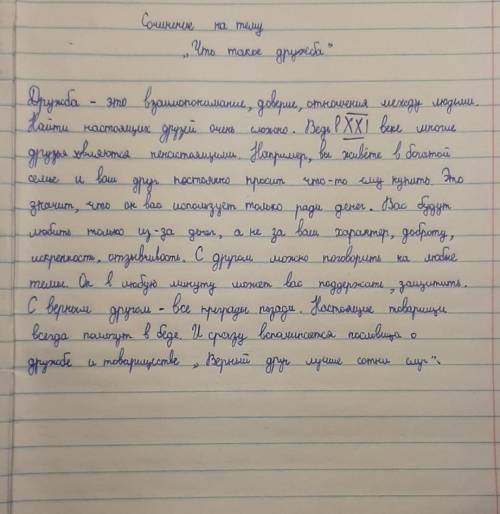 Сочинение на тему
„Что такое дружба"
Дружба - это взаимопонимание, доверие, отношения между людьми.
Найти настоящих друзей очень сложно. Ведь в XXI веке многие
друзья являются ненастоящими. Например, вы живёте в богатой
семье и ваш друг постоянно просит что-то ему купить. Это
значит, что он вас использует только ради денег. Вас будут
любить только из-за денег, а не за ваш характер, доброту,
искренность, отзывчивость. С другом можно поговорить на любые
темы. Он в любую минуту может вас поддержать, защитить.
С верным другом - все преграды позади. Настоящие товарищи
всегда помогут в беде. И сразу вспоминается пословица о
дружбе и товариществе „Верный друг лучше сотни слуг".